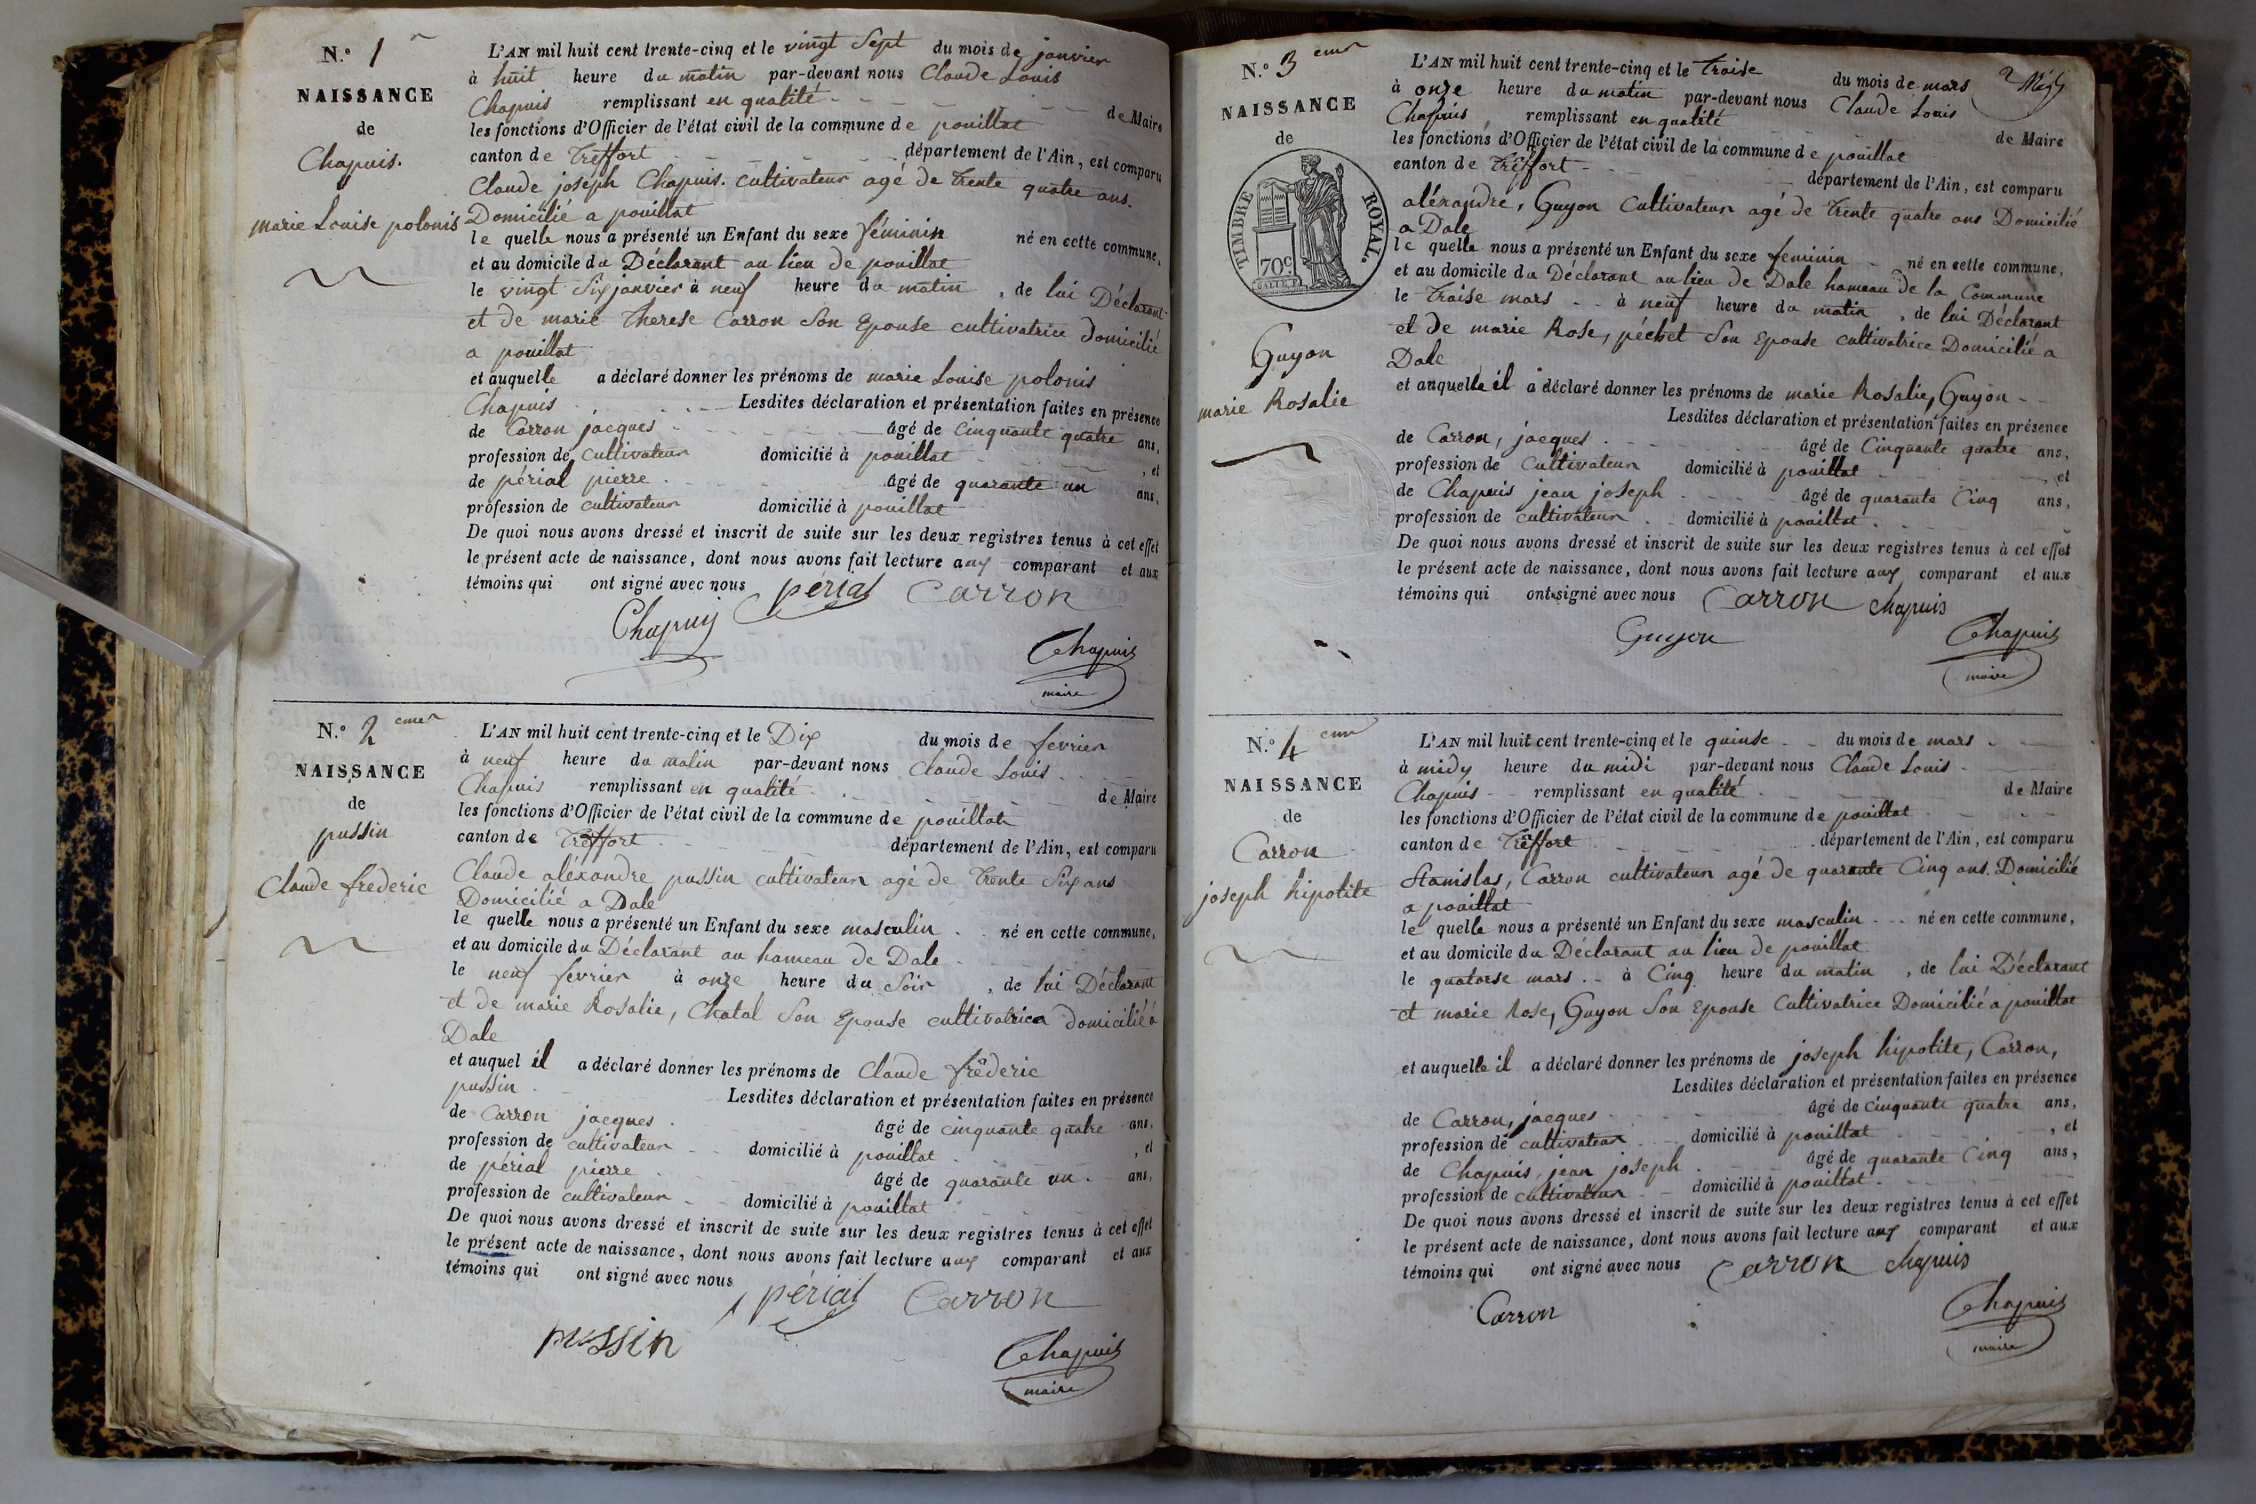 N.° 1
NAISSANCE
de
Chapuis.
marie Louise polonis
L'AN mil huit cent trente-cinq et le vingt Sept du mois de janvier
à huit heure du matin par-devant nous Claude Louis
Chapuis remplissant en qualité de Maire
les fonctions d'Officier de l'état civil de la commune de pouillat
canton de Treffort département de l'Ain, est comparu
Claude joseph Chapuis. cultivateur agé de trente quatre ans.
Domicilié a pouillat
le quelle nous a présenté un Enfant du sexe féminin né en cette commune,
et au domicile du Déclarant au lieu de pouillat
le vingt Six janvier à neuf heure du matin, de lui Déclarant
et de marie Therese Carron Son Epouse cultivatrice domicilié
a pouillat
et auquelle a déclaré donner les prénoms de marie Louise polonis
Chapuis Lesdites déclaration et présentation faites en présence
de Carron jacques âgé de Cinquante quatre ans,
profession de cultivateur domicilié à pouillat, et
de périal pierre âgé de quarante un ans,
profession de cultivateur domicilié à pouillat
De quoi nous avons dressé et inscrit de suite sur les deux registres tenus à cet effet
le présent acte de naissance, dont nous avons fait lecture aux comparant et aux
témoins qui ont signé avec nous périal Carron
Chapuy
Chapuis
maire
N.° 2 eme
NAISSANCE
de
pussin
Claude frederic
L'AN mil huit cent trente-cinq et le Dix du mois de fevrier
à neuf heure du matin par-devant nous Claude Louis
Chapuis remplissant en qualité de Maire
les fonctions d'Officier de l'état civil de la commune de pouillat
canton de Treffort département de l'Ain, est comparu
Claude aléxandre pussin cultivateur agé de Trente Six ans
Domicilié a Dale
le quelle nous a présenté un Enfant du sexe masculin né en cette commune,
et au domicile du Déclarant au hameau de Dale
le neuf fevrier à onze heure du Soir, de lui Déclarant
et de marie Rosalie, Chatal Son Epouse cultivatrice domicilié à
Dale
et auquel il a déclaré donner les prénoms de Claude frederic
pussin Lesdites déclaration et présentation faites en présence
de Carron jacques âgé de cinquante quatre ans,
profession de cultivateur domicilié à pouillat, et
de périal pierre âgé de quarante un ans,
profession de cultivateur domicilié à pouillat
De quoi nous avons dressé et inscrit de suite sur les deux registres tenus à cet effet
le présent acte de naissance, dont nous avons fait lecture aux comparant et aux
témoins qui ont signé avec nous périal Carron
pussin
Chapuis
maire
N.° 3 eme
NAISSANCE
de
TIMBRE ROYAL.
70c
Guyon
marie Rosalie
L'AN mil huit cent trente-cinq et le Traise du mois de mars
à onze heure du matin par-devant nous Claude Louis
Chapuis remplissant en qualité de Maire
les fonctions d'Officier de l'état civil de la commune de pouillat
canton de Treffort département de l'Ain, est comparu
aléxandre, Guyon Cultivateur agé de Trente quatre ans Domicilié
a Dale
le quelle nous a présenté un Enfant du sexe feminin né en cette commune,
et au domicile du Déclarant au lieu de Dale hameau de la Commune
le Traise mars à neuf heure du matin, de lui Déclarant
et de marie Rose, péchet Son Epouse cultivatrice Domicilié a
Dale
et auquelle il a déclaré donner les prénoms de marie Rosalie, Guyon
Lesdites déclaration et présentation faites en présence
de Carron, jacques âgé de Cinquante quatre ans,
profession de Cultivateur domicilié à pouillat, et
de Chapuis jean joseph âgé de quarante Cinq ans,
profession de cultivateur domicilié à pouillat.
De quoi nous avons dressé et inscrit de suite sur les deux registres tenus à cet effet
le présent acte de naissance, dont nous avons fait lecture aux comparant et aux
témoins qui ont signé avec nous Carron chapuis
Guyon
Chapuis
maire
N.° 4 eme
NAISSANCE
de
Carron
joseph hipolite
L'AN mil huit cent trente-cinq et le quinse du mois de mars
à midy heure du midi par-devant nous Claude Louis
Chapuis remplissant en qualité de Maire
les fonctions d'Officier de l'état civil de la commune de pouillat
canton de Treffort département de l'Ain, est comparu
Stanislas, Carron cultivateur agé de quarante Cinq ans. Domicilié
a pouillat
le quelle nous a présenté un Enfant du sexe masculin né en cette commune,
et au domicile du Déclarant au lieu de pouillat
le quatorse mars à Cinq heure du matin, de lui Déclarant
et marie Rose, Guyon Son Epouse Cultivatrice Domicilié a pouillat
et auquelle il a déclaré donner les prénoms de joseph hipolite, Carron,
Lesdites déclaration et présentation faites en présence
de Carron, jacques âgé de cinquante quatre ans,
profession de cultivateur domicilié à pouillat, et
de Chapuis, jean joseph âgé de quarante Cinq ans,
profession de cultivateur domicilié à pouillat.
De quoi nous avons dressé et inscrit de suite sur les deux registres tenus à cet effet
le présent acte de naissance, dont nous avons fait lecture aux comparant et aux
témoins qui ont signé avec nous Carron chapuis
Carron
Chapuis
maire